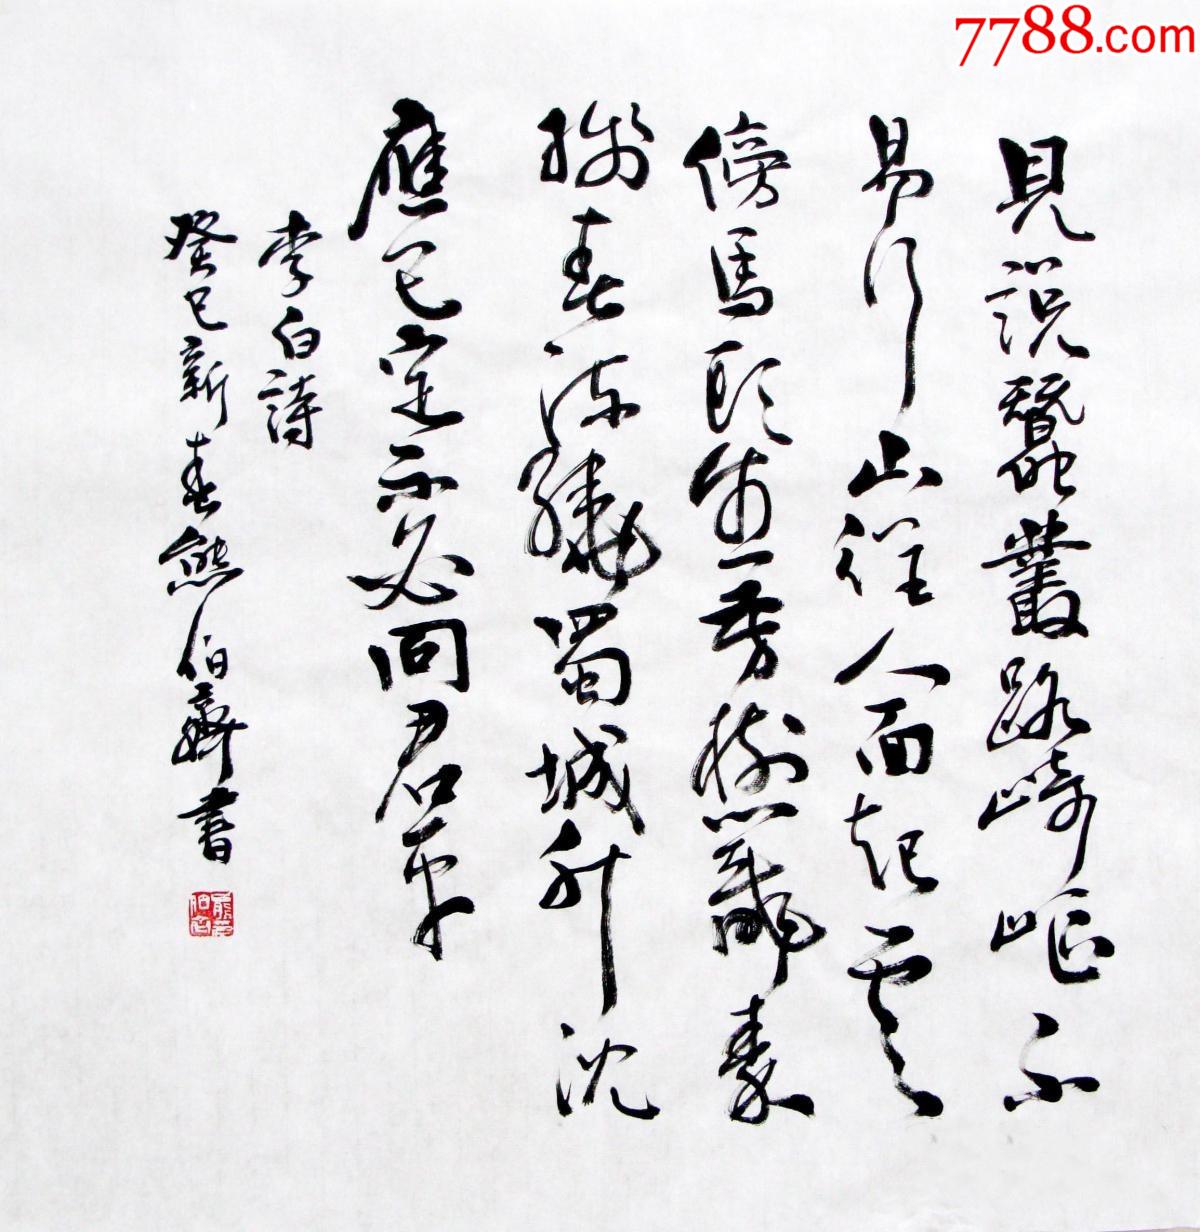 7788.com
見説蠶叢路崎岖不
易行山從人面起雲
傍馬頭生芳樹籠秦
棧春流繞蜀城升沈
應已定不必問君平
李白詩
癸巳新春熊伯齊書